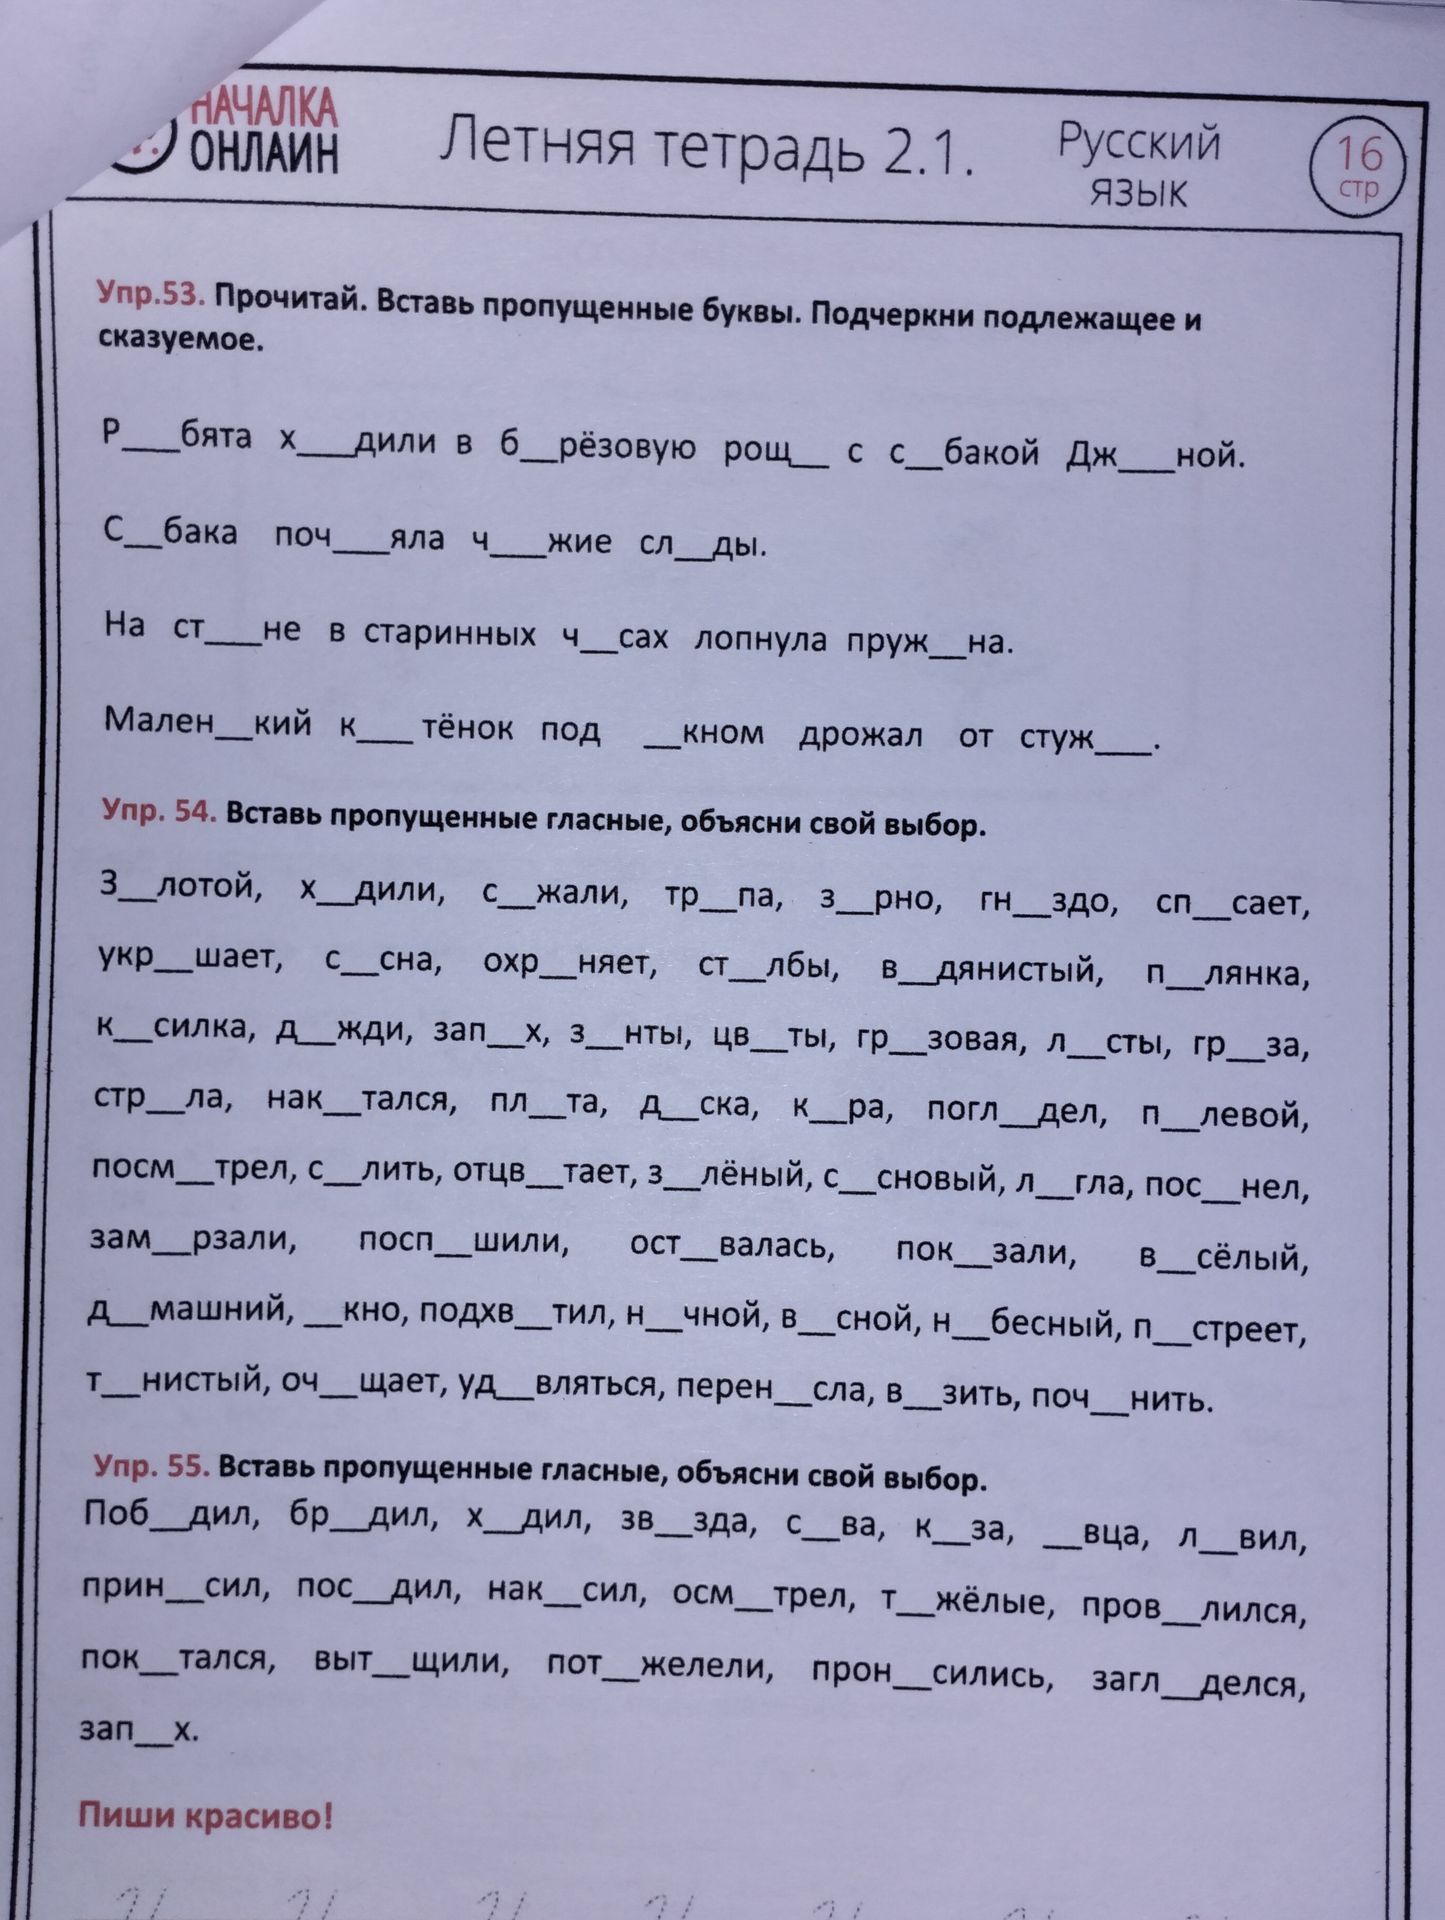 НАЧАЛКА
ОНЛАЙН
Летняя тетрадь 2.1.
Русский
язык
16
стр
Упр.53. Прочитай. Вставь пропущенные буквы. Подчеркни подлежащее и
сказуемое.
Р___бята х___дили в б__рёзовую рощ__ с с__бакой Дж___ной.
С__бака поч___яла ч___жие сл__ды.
На ст___не в старинных ч__сах лопнула пруж__на.
Мален__кий к___ тёнок под __кном дрожал от стуж___.
Упр. 54. Вставь пропущенные гласные, объясни свой выбор.
З__лотой, х__дили, с__жали, тр__па, з__рно, гн__здо, сп__сает,
укр__шает, с__сна, охр__няет, ст__лбы, в__дянистый, п__лянка,
к__силка, д__жди, зап__х, з__нты, цв__ты, гр__зовая, л__сты, гр__за,
стр__ла, нак__тался, пл__та, д__ска, к__ра, погл__дел, п__левой,
посм__трел, с__лить, отцв__тает, з__лёный, с__сновый, л__гла, пос__нел,
зам__рзали, посп__шили, ост__валась, пок__зали, в__сёлый,
д__машний, __кно, подхв__тил, н__чной, в__сной, н__бесный, п__стреет,
т__нистый, оч__щает, уд__вляться, перен__сла, в__зить, поч__нить.
Упр. 55. Вставь пропущенные гласные, объясни свой выбор.
Поб__дил, бр__дил, х__дил, зв__зда, с__ва, к__за, __вца, л__вил,
прин__сил, пос__дил, нак__сил, осм__трел, т__жёлые, пров__лился,
пок__тался, выт__щили, пот__желели, прон__сились, загл__делся,
зап__х.
Пиши красиво!